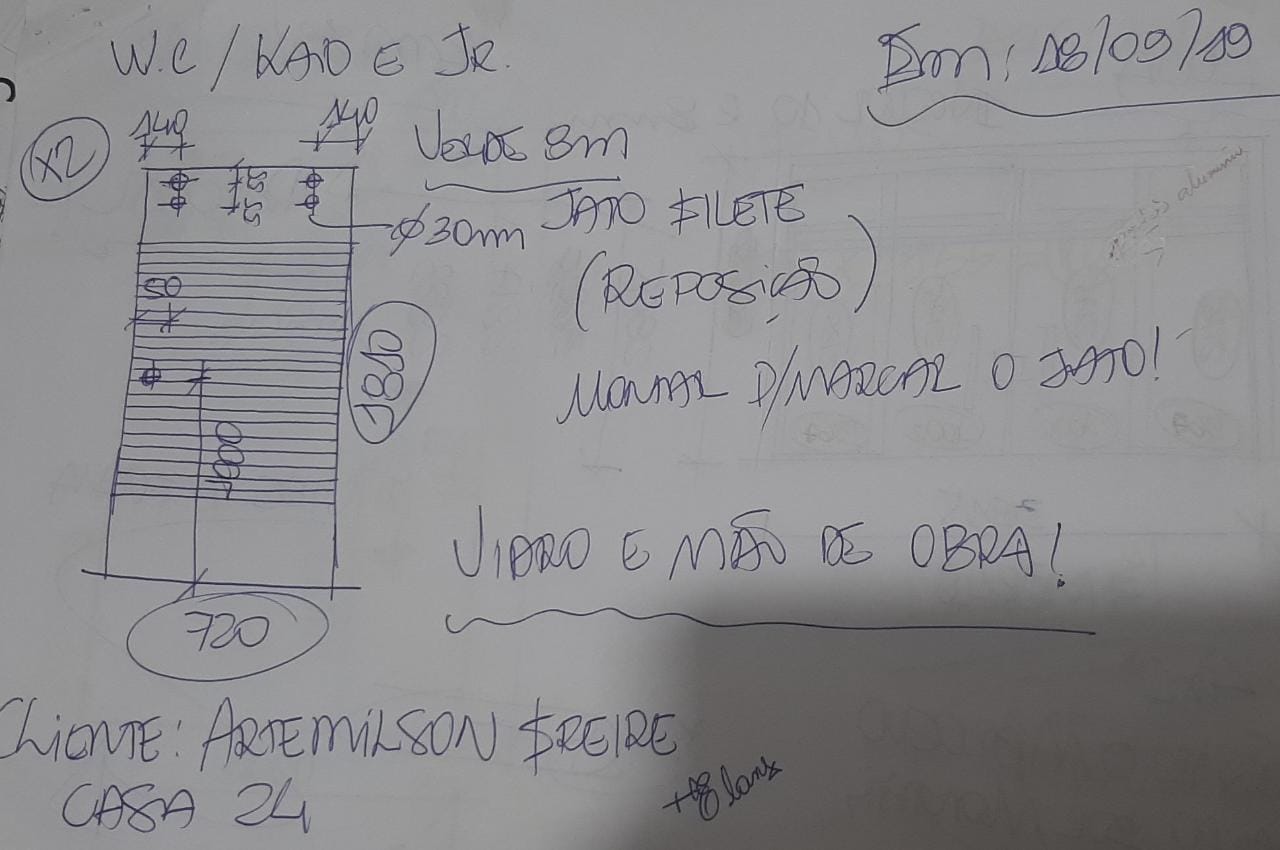 W.C / KAIO E JR.
Em: 18/09/19
X2
140
140
VERDE 8m
Ø30m
JATO FILETE
(REPOSIÇÃO)
50
1810
MONTAR P/MARCAR O JATO!
1000
VIDRO E MÃO DE OBRA!
720
CLIENTE: ARTEMILSON FREIRE
CASA 24